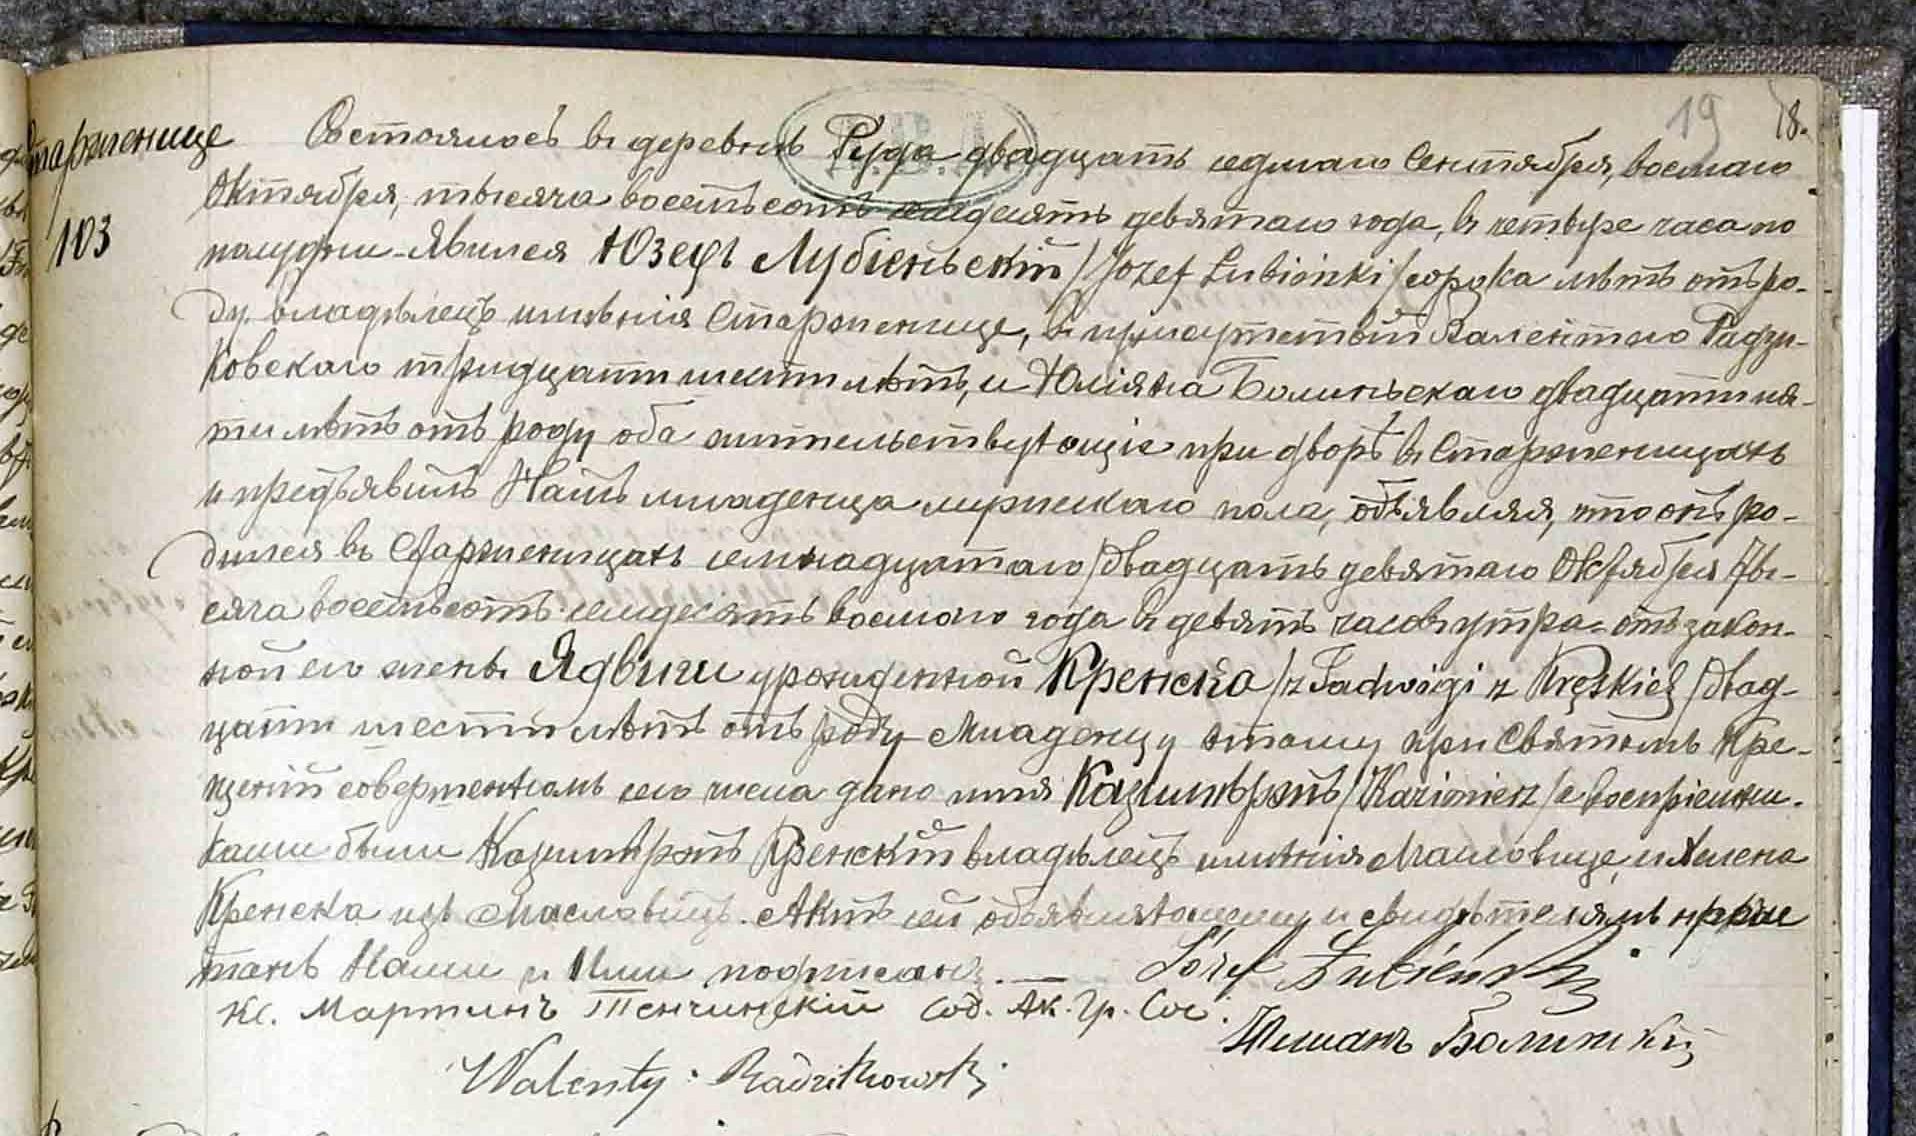 19 18.
Старженице
Состоялось въ деревнѣ Руда двадцать седмаго Сентября, восмаго
Октября, тысяча восемьсотъ семдесятъ девятаго года, въ четыре часа по
103
полудни - Явился Юзефъ Лубіеньскій /Józef Lubiénski/ сорока лѣтъ отъ ро-
ду, владѣлецъ имѣнія Старженице, въ присутствіи Валентаго Радзи-
ковскаго тридцати шести лѣтъ, и Юліяна Болиньскаго двадцати пя-
ти лѣтъ отъ роду оба жительствующіе при дворѣ въ Старженицахъ
и предъявилъ Намъ младенца мужескаго пола, объявляя, что онъ ро-
дился въ Старженицахъ семнадцатаго /двадцать девятаго Октября ты-
сяча восемьсотъ семдесятъ восмаго года въ девять часовъ утра - отъ закон-
ной его жены Ядвиги урожденной Кренска /z Jadwigi z Kręskich/ двад-
цати шести лѣтъ отъ роду Младенцу этому при Святомъ Кре-
щеніи совершенномъ сего числа дано имя Казимѣржъ /Kazimierz/ а воспріемни-
ками были Казимѣржъ Кренскій владѣлецъ имѣнія Масловице, и Хелена
Кренска изъ Масловицъ. Актъ сей объявляющему и свидѣтелямъ прочи
танъ Нами и Ими подписанъ. — Józef Łubieński
Кс. Мартинъ Тенчинскій Сод. Ак. Гр. Сос.
Юлианъ Болинский
Walenty Radzikowski